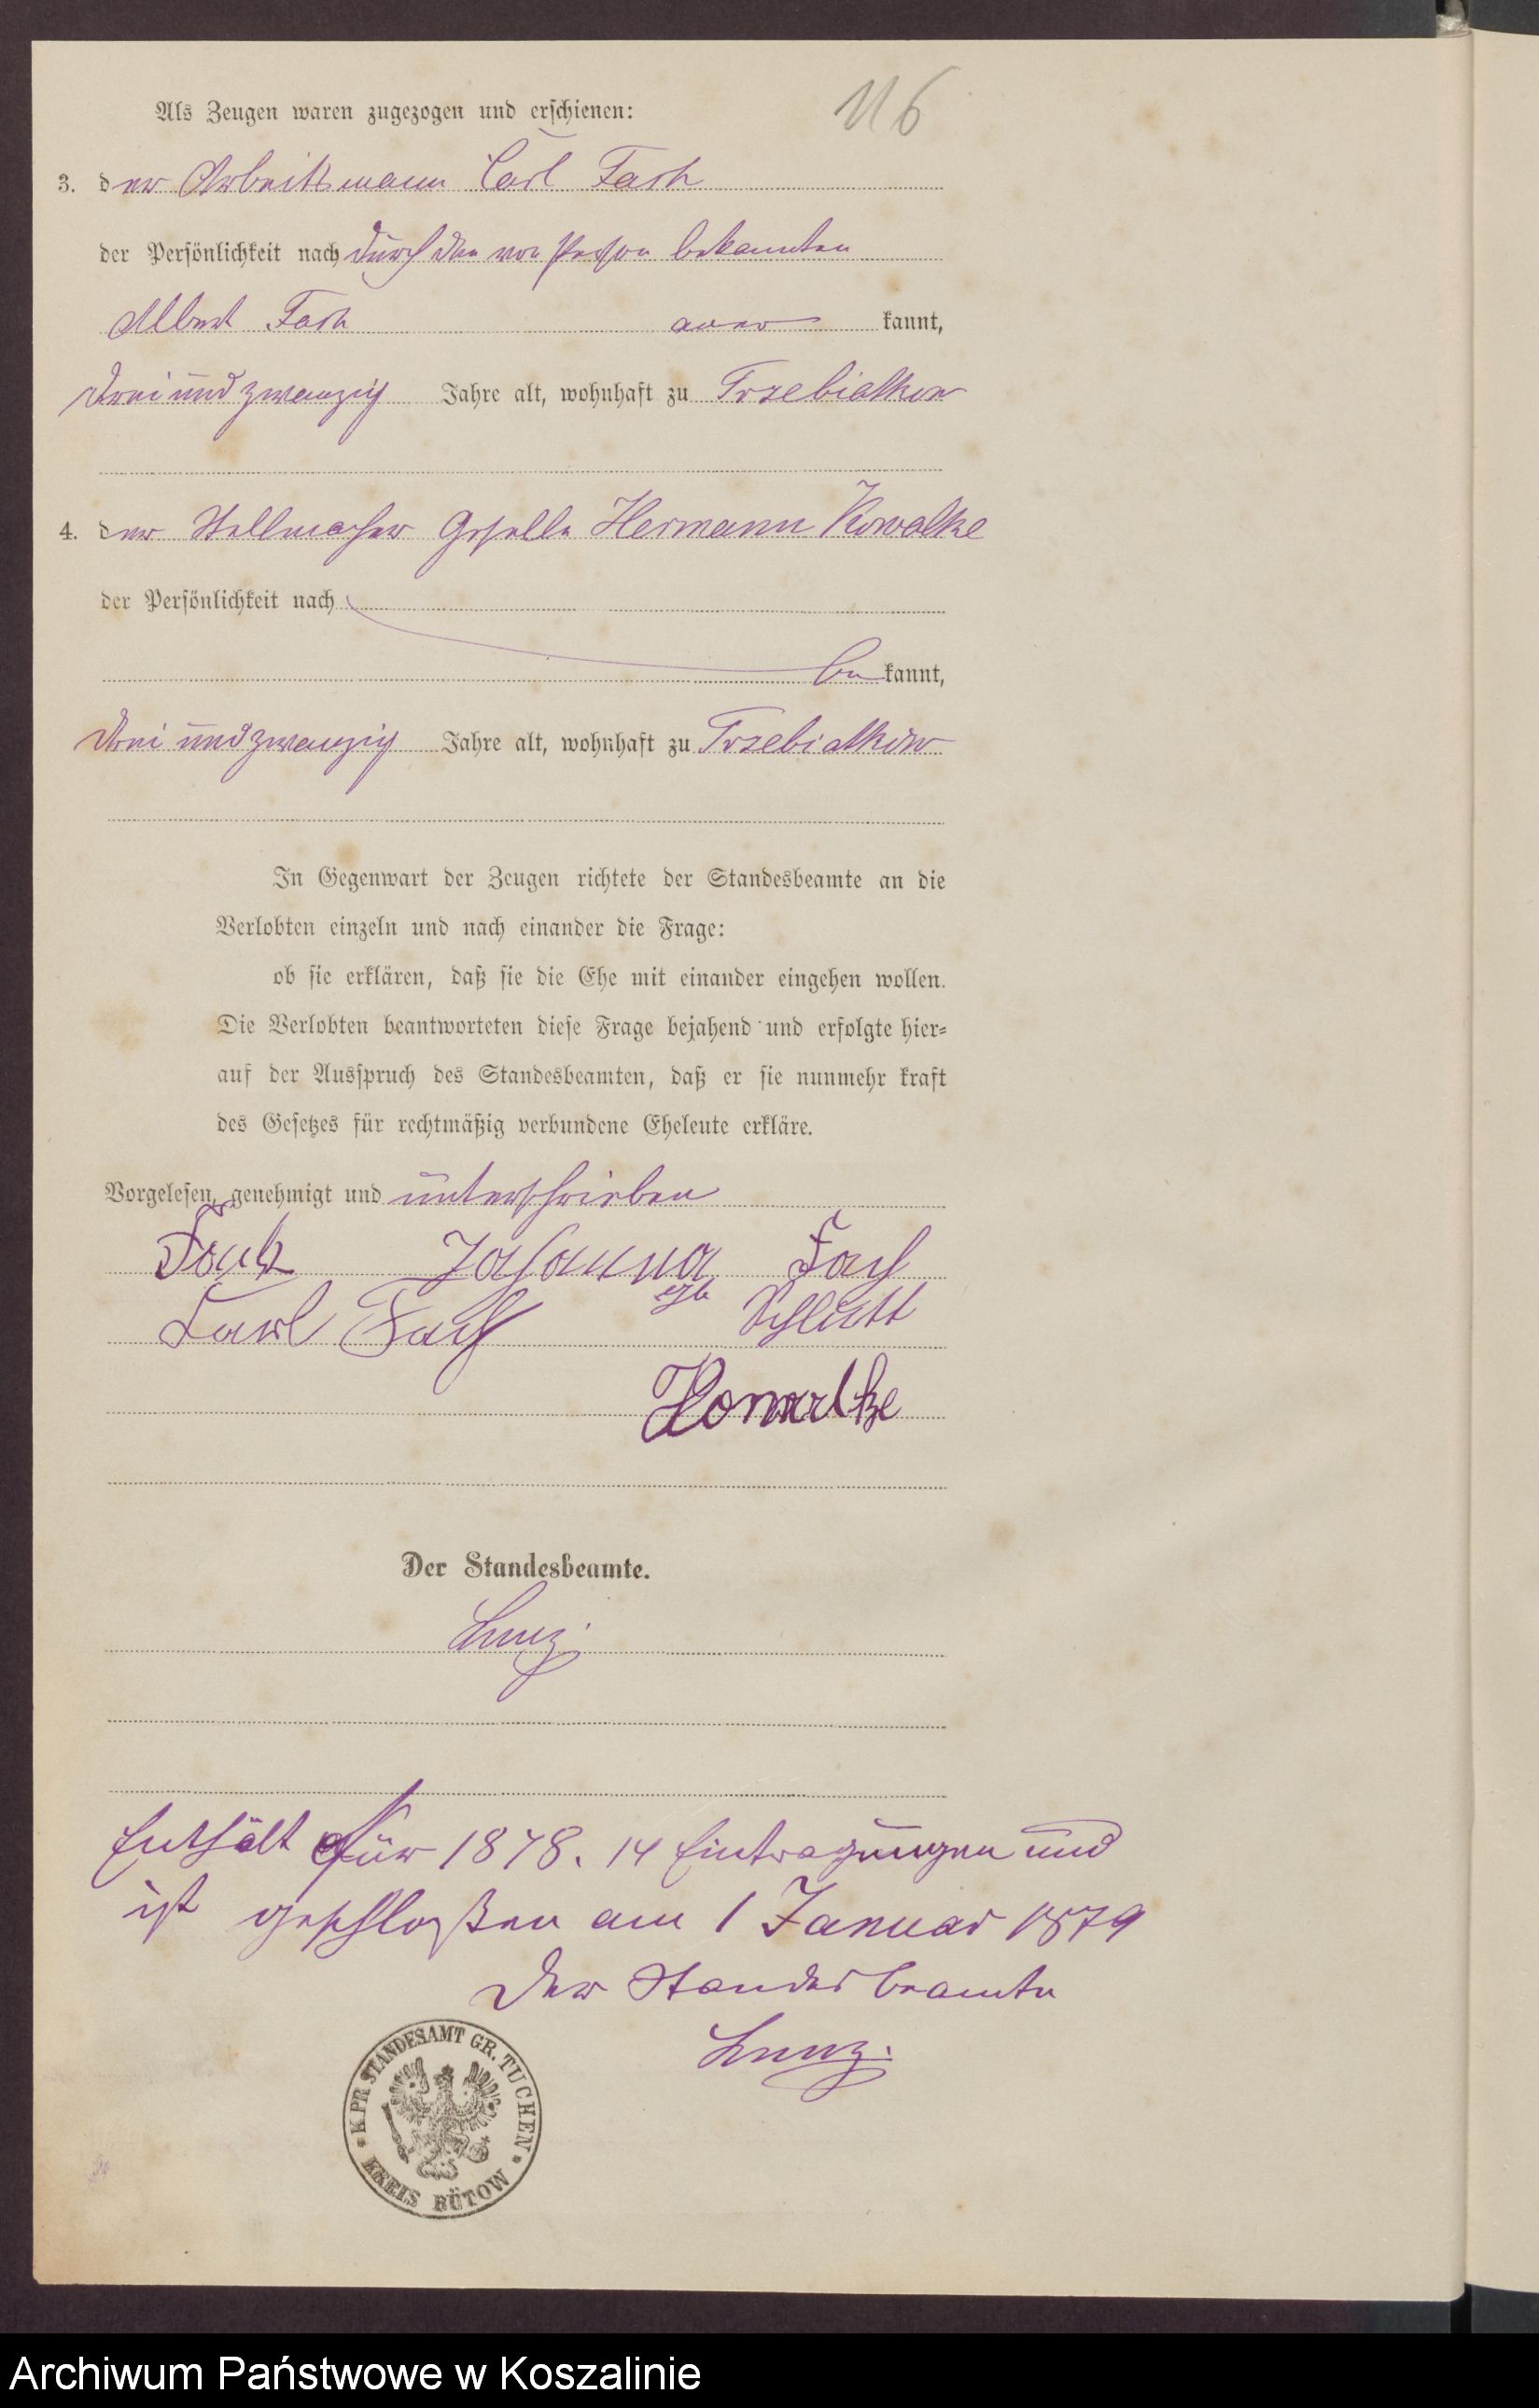 116
Als Zeugen waren zugezogen und erschienen:
3. der Arbeitsmann Carl Fach
der Persönlichkeit nach durch den von Person bekannten
Albert Fach aner kannt,
drei und zwanzig Jahre alt, wohnhaft zu Trzebiatkow
4. der Stellmacher Geselle Hermann Kowalke
der Persönlichkeit nach
be kannt,
drei und zwanzig Jahre alt, wohnhaft zu Trzebiatkow
In Gegenwart der Zeugen richtete der Standesbeamte an die
Verlobten einzeln und nach einander die Frage:
ob sie erklären, daß sie die Ehe mit einander eingehen wollen.
Die Verlobten beantworteten diese Frage bejahend und erfolgte hier=
auf der Ausspruch des Standesbeamten, daß er sie nunmehr kraft
des Gesetzes für rechtmäßig verbundene Eheleute erkläre.
Vorgelesen, genehmigt und unterschrieben
Johanna Fach
Karl Fach geb Schlutt
Kowalke
Der Standesbeamte.
Enthält für 1878. 14 Eintragungen und
ist geschloßen am 1 Januar 1879
Der Standesbeamte
K. PR. STANDESAMT GR. TUCHEN
KREIS BÜTOW
Archiwum Państwowe w Koszalinie